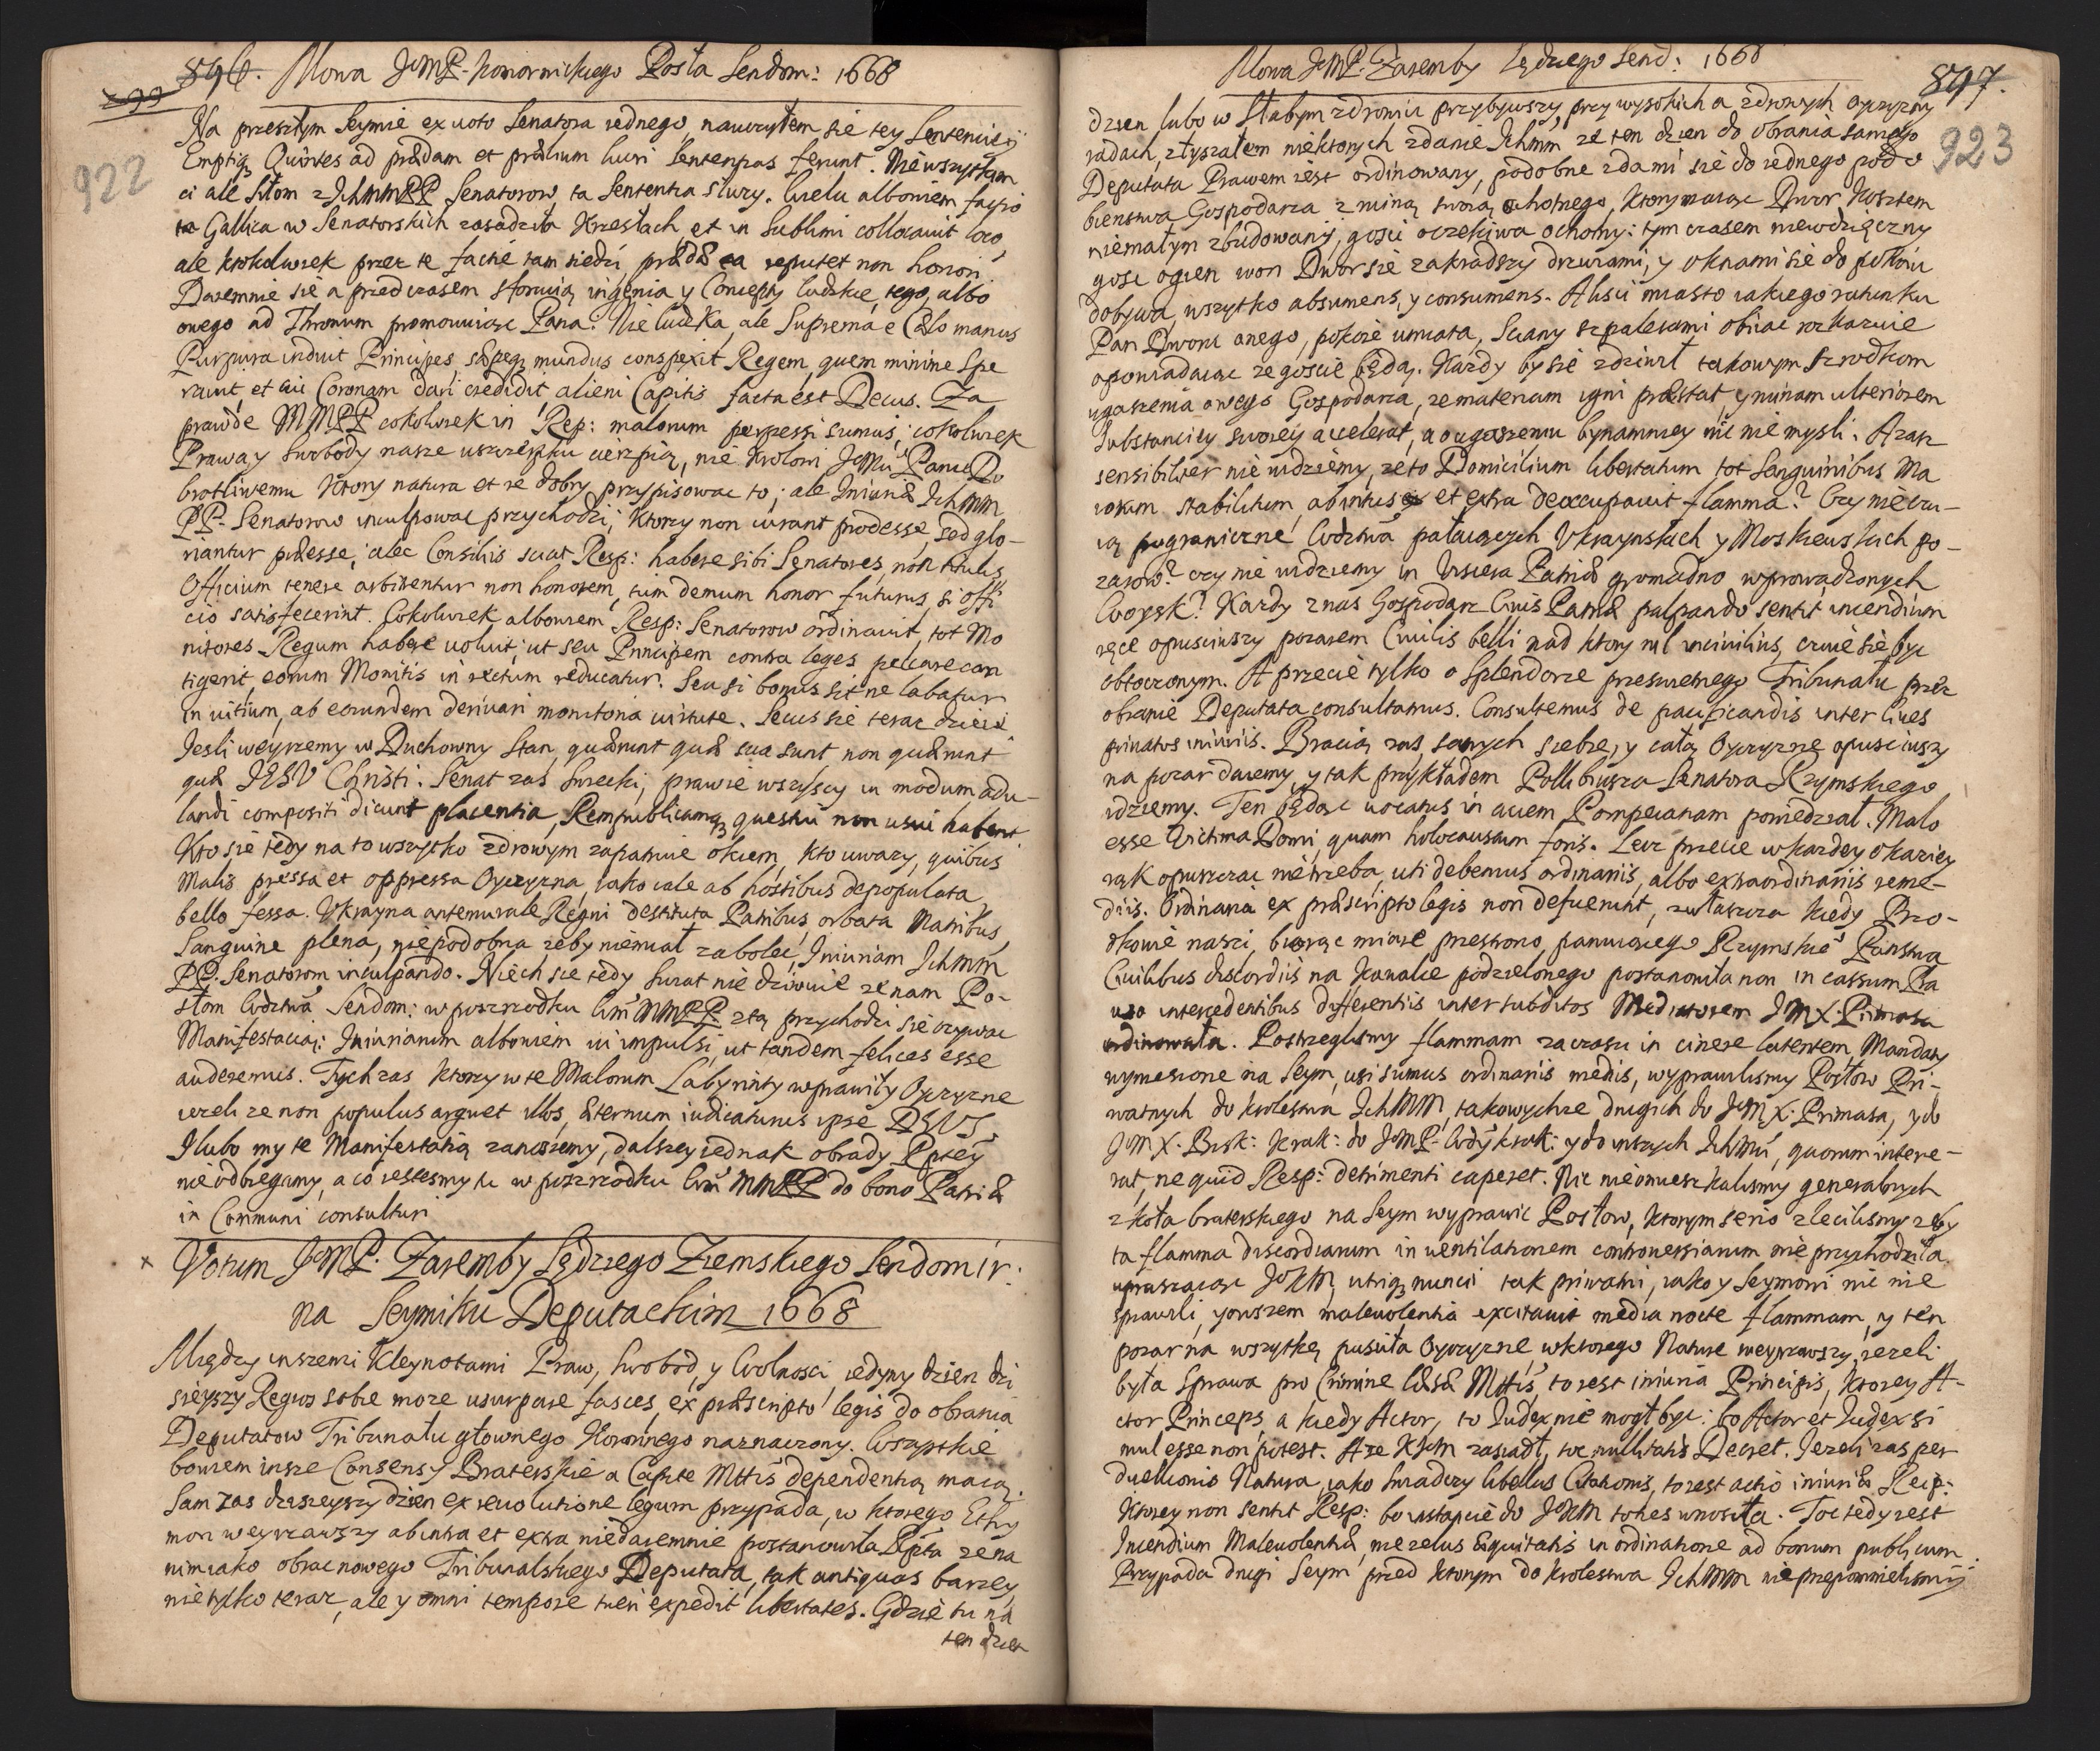 896. Mowa JeMP. Komornickiego Posła Sendom: 1668
922
Na przeszłym Seymie ex uoto Senatora iednego, nauczyłem się tey Sentenciey
Emptiq Quirites ad prædam et prælium lucri Sentenpas ferunt. Nie wszytkim
ci ale siłom z IchMMPP Senatorow, ta Sententia słuzy. Wielu alboniem facpio
ta Gallica w Senatorskich zasadziła Krzesłach et in Sublimi collocauit loco
ale ktokolwiek przez te factie tam siedzi prædæ ea reputet non honori
Daremnie się a przed czasem sforcuią ingenia y Concepty ludzkie, tego, albo
onego ad Thronum promouuiąc Pana. Nie ludzka, ale Suprema e Cælo manus
Purpura induit Principes, sæpeq mundus conspexit Regem, quem minime spe
rauit, et cui Coronam dari credidit alieni Capitis facta est Decus. Za
prawdę MMPP cokolwiek in Rep: malorum perpessi sumus, cokolwiek
Prawa y Swobody nasze uszczerpku cierpią, nie Krolowi JeMci Panu Do
brotliwemu ktory natura et re dobry przypisowac to; ale Iniuriæ Ichmm
PP. Senatorow inculpowac przychodzi; ktorzy non curant prodesse, sed glo-
riantur præesse; alec Consiliis suat Resp: habere sibi Senatores, non titulis
Officium tenere arbitrentur non honorem, tum demum honor futurus, si offi
cio satisfecerint. Cokolwiek albowiem Resp: Senatorow ordinauit, tot Mo
nitores Regum habere uoluit; ut seu Principem contra leges peccare con
tigerit, eorum Monitis in rectum reducatur. Seu si bonus sit ne labatur
in uitium, ab eorundem deriuari monitoria uirtute. Secus się teraz dzieie
Iesli weyrzemy w Duchowny Stan, quærunt quæ sua sunt, non quærunt
quæ IESV Christi. Senat zas Swiecki, prawie wszyscy in modum adu-
landi compositi dicunt placentia, Rempublicamq questui non usui habent
Kto się tedy na to wszytko zdrowym zapatruie okiem, kto uwazy, quibus
Malis pressa et oppressa Oyczyzna, iako cale ab hostibus depopulata,
bello fessa. Vkrayna antemurale Regni destituta Patribus, orbata Natibus
Sanguine plena, niepodobna zeby niemiał zaboleć, Iniuriam Ichmm
PP. Senatorom inculpando. Niech sie tedy swiat nie dziwuie ze nam Po-
słom Wdztwa Sendom: w poszrodku Wm MMPP z tą przychodzi się ozywac
Manifestacią: Iniuriarum alboniem ui impulsi, ut tandem felices esse
auderemus. Tych zas ktorzy w te Malorum Labyrinty wprawiły Oyczyzne
iezeli ze non populus arguet illos, æternum iudicaturus ipse DEVS.
I lubo my te Manifestatią zanosiemy, dalszey iednak obrady Rptey
nieodbiegamy, a co iestesmy tu w poszrodku Wm MMPP do bono Patriæ
in Communi consulturi
x Votum JeMP. Zaremby Sędziego Ziemskiego Sendomir:
na Seymiku Deputackim 1668
Między inszemi Kleynotami Praw, Swobod, y Wolnosci iedyny dzien dzi
sieyszy Regios sobie moze usurpare fasces, ex præscripto legis do obrania
Deputatow Tribunału głownego Koronnego naznaczony. Wszytskie
bowiem insze Consensy Braterskie a Capite Mttis dependentią maią.
Sam zas dzisieyszy dzien ex reuolutione legum przypada, w ktorego Ethy
mon weyrzawszy ab intra et extra niedaremnie postanowiła Rpta ze na
nim iako obrac nowego Tribunalskiego Deputata, tak antiquas barziey
nietylko teraz, ale y omni tempore tueri expedit libertates. Gdzie tu na
ten dzien
Mowa JeMP. Zaremby Sędziego Send: 1668
897.
923
dzien lubo w słabym zdrowiu przybywszy, przy wysokich a zdrowych Oyczyzny
radach, zsłyszałem niektorych zdanie Ichmm ze ten dzien do obrania samego
Deputata Prawem iest ordinowany, podobne zda mi się do iednego podo
bienstwa Gospodarza z ruiną swoią ochotnego, ktory maiąc Dwor kosztem
niemałym zbudowany, gosci oczekiwa ochotny: tym czasem niewdzięczny
gosc ogien won Dwor sie zakradszy drzwiami, y oknami się do pokoiu
dobywa, wszytko absumens, y consumens. Alisci miasto iakiego ratunku
Pan Dworu onego, pokoie umiata, Sciany szpalerami obiiac rozkazuie
opowiadaiąc ze goscie będą. Kazdy by się zdziwił takowym szrodkom
ugaszenia owego Gospodarza, ze materiam igni præstat, y ruinam ulteriorem
Substanciey swoiey accelerat, a o ugaszeniu bynamniey nic nie mysli. Azasz
sensibiliter nie widziemy, ze to Domicilium libertatum tot Sanguinibus Ma
iorum stabilitum, ab intus et extra deoccupauit flamma? Czy nie czu-
ią pograniczne Wodztwa pałaiących Vkraynskich y Moskiewskich po-
zarow? czy nie widziemy in Viscera Patriæ gromadno wprowadzonych
Woysk? Kazdy z nas Gospodarz Ciuis Patriæ palpando sentit incendium
ręce opusciwszy pozarem Ciuilis belli nad ktory nil inciuilius, czuie się byc
obtoczonym. A przecie tylko o Splendorze przeswietnego Tribunału przez
obranie Deputata consultamus. Consultemus de pacificandis inter Ciues
priuatos iniuriis. Bracią zas samych siebie, y całą Oyczyznę opusciwszy
na pozar daiemy, y tak przykładem Pollibiusza Senatora Rzymskiego
idziemy. Ten będąc uocatus in aciem Pompeianam powiedział. Malo
esse Victima Domi, quam holocaustum foris. Lecz przecie w kazdey okaziey
rąk opuszczac nie trzeba, uti debemus ordinariis, albo extraordinariis reme-
diis. Ordinaria ex præscripto legis non defuerunt, zwłaszcza kiedy Przo-
dkowie naszi, biorąc miarę przestrono panuiącego Rzymskie Panstwa
Ciuilibus discordiis na kawalce podzielonego postanowiła non in cassum Pra
wo intercedentibus differentiis inter subditos Mediatorem JMX. Primasa
ordinowała. Postrzeglismy flammam zaczasu in cinere latentem, Mandaty
wyniesione na Seym, usi sumus ordinariis mediis, wyprawilismy Posłow Pri-
watnych do krolestwa Ichmm, takowychze drugich do JeMX. Primasa, y do
JeMX. Bisk: Krak: do JeMP. Wdy krak: y do inszych Ichmci, quorum intere-
rat, ne quid Resp: detrimenti caperet. Nie nieomieszkalismy generalnych
z koła braterskiego na Seym wyprawic Posłow, ktorym serio zlecilismy zeby
ta flamma discordiarum in uentilationem controuersiarum nie przychodziła
upraszaiąc JoKM, utriq nuncii tak priwatni, iako y Seymowi nic nie
sprawili, y owszem maleuolentia excitauit media nocte flammam, y ten
pozar na wszytkę puściła Oyczyznę w ktorego Naturę weyzrawszy, iezeli
była Sprawa pro Crimine læsæ Mttis, to iest iniuria Principis, ktorey A-
ctor Princeps, a kiedy Actor, to Iudex nie mogł byc: bo Actor et Iudex si
mul esse non potest. A ze KJM zasiadł, toc nullitatis Decret. Iezeli zas per
duellionis Natura, iako swiadczy libellus Citationis, to iest actio iniuriæ Reip:
Ktorey non sentit Resp: bo instancie do JoKM to nes wnosiła. Toc tedy iest
Incendium Maleuolentiæ, nie zelus Æquitatis in ordinatione ad bonum publicum.
Przypada drugi Seym przed ktorym do krolestwa Ichmm nieprzepomnielismy